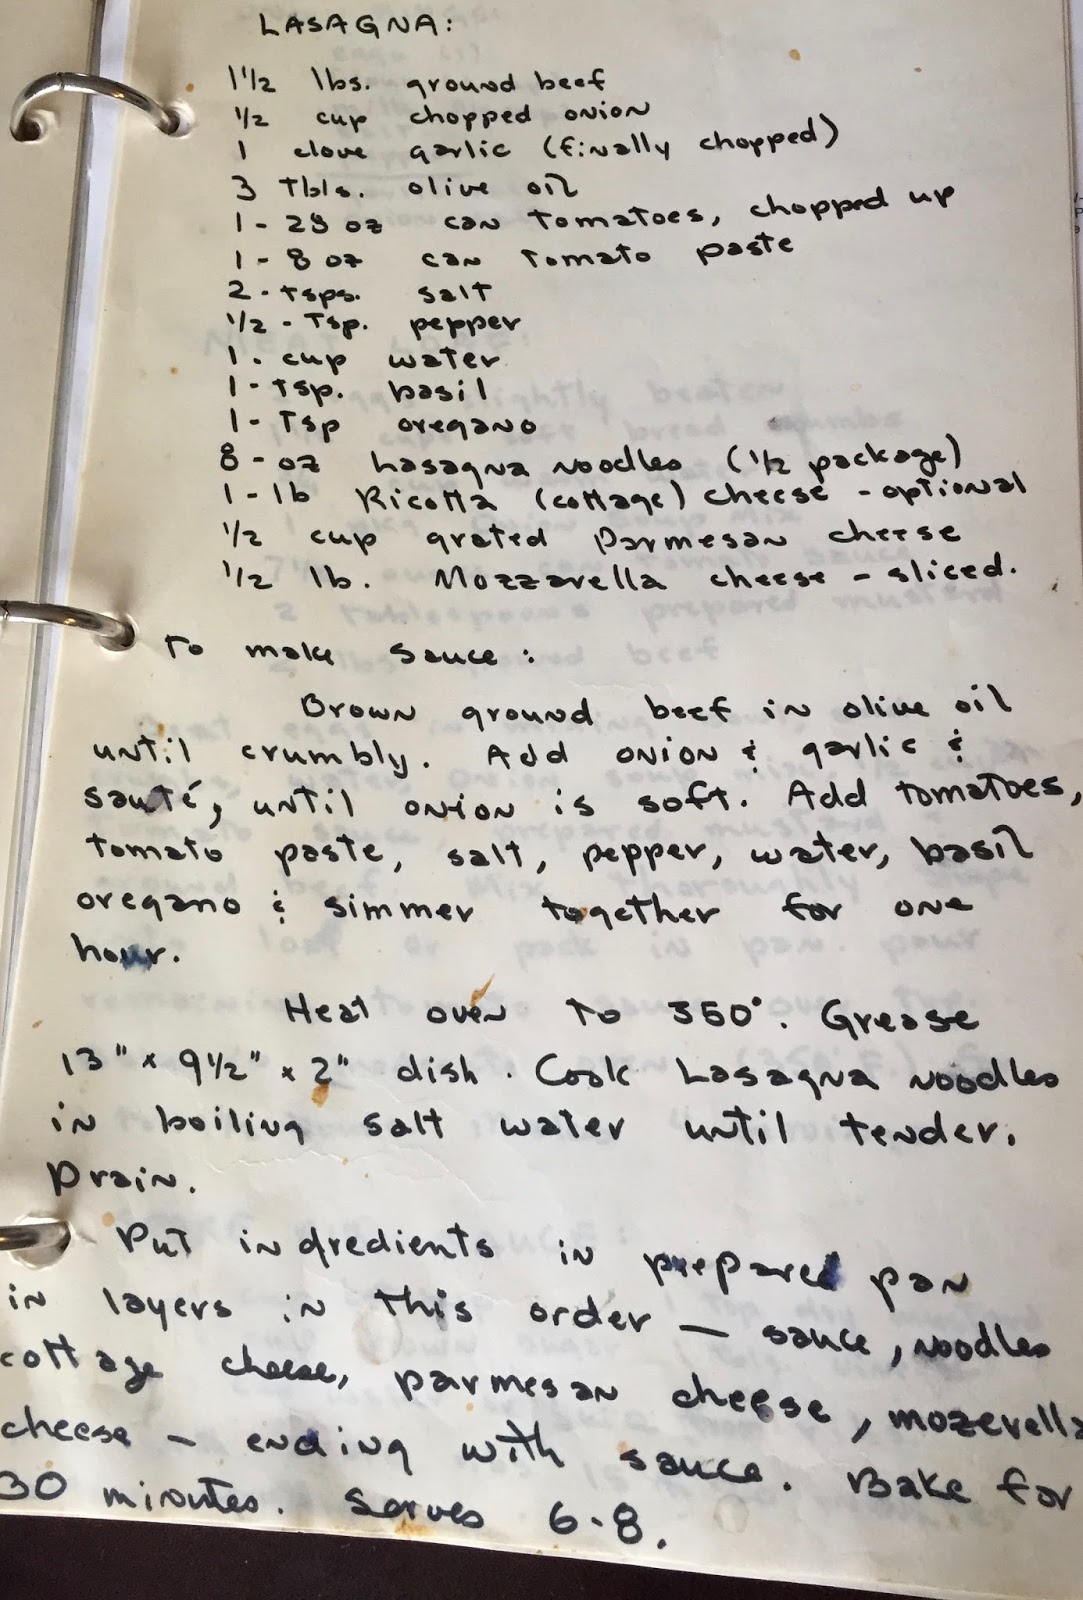 LASAGNA:
1½ lbs. ground beef
½ cup chopped onion
1 clove garlic (finally chopped)
3 Tbls. olive oil
1 - 28 oz can tomatoes, chopped up
1 - 8 oz can tomato paste
2 - tsps. salt
½ - Tsp. pepper
1 - cup water
1 - tsp. basil
1 - Tsp oregano
8 - oz Lasagna noodles (½ package)
1 - lb Ricotta (cottage) cheese - optional
½ cup grated Parmesan cheese
½ lb. Mozzarella cheese - sliced.
To make sauce:
Brown ground beef in olive oil
until crumbly. Add onion & garlic &
sauté, until onion is soft. Add tomatoes,
tomato paste, salt, pepper, water, basil
oregano & simmer together for one
hour.
Heat oven to 350°. Grease
13" x 9½" x 2" dish. Cook Lasagna noodles
in boiling salt water until tender.
Drain.
Put ingredients in prepared pan
in layers in this order — sauce, noodles
cottage cheese, parmesan cheese, mozerella
cheese - ending with sauce. Bake for
30 minutes. Serves 6-8.